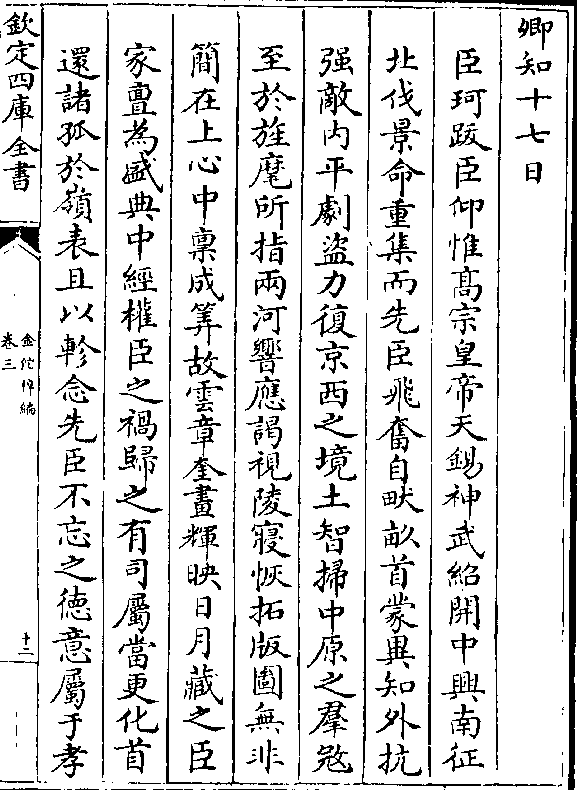 卿知十七日
臣珂跋臣仰惟髙宗皇帝天錫神武紹開中興南征
北伐景命重集而先臣飛奮自畎畝首蒙異知外抗
强敵内平劇盗力復京西之境土智掃中原之羣冦
至於旌麾所指兩河響應謁視陵寢恢拓版圖無非
簡在上心中稟成筭故雲章奎畫輝映日月藏之臣
家亶為盛典中經權臣之禍歸之有司屬當更化首
還諸孤於嶺表且以軫念先臣不忘之徳意屬于孝
欽定四庫全書
金佗稡編
卷三
十二